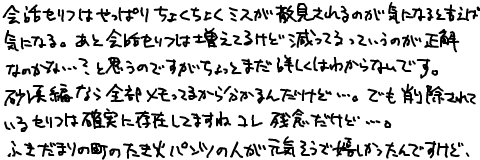 会話セリフはやっぱりちょくちょくミスが散見されるのが気になると言えば
気になる。あと会話セリフは増えてるけど減ってるっていうのが正解
なのかな…?と思うのですがちょっとまだ詳しくはわからないです。
砂漠編なら全部メモってるから分かるんだけど…。でも削除されて
いるセリフは確実に存在してますねコレ 残念だけど…。
ふきだまりの町のたき火パンツの人が元気そうで嬉しかったんですけど、